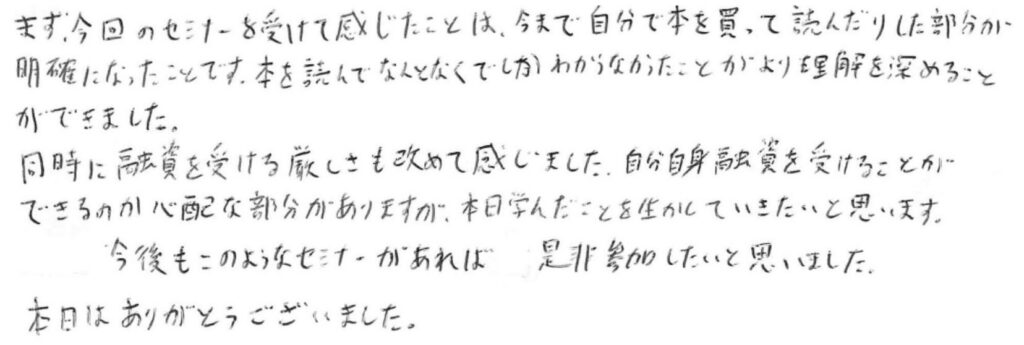 まず、今回のセミナーを受けて感じたことは、今まで自分で本を買って読んだりした部分が
明確になったことです。本を読んでなんとなくでしかわからなかったことがより理解を深めること
ができました。
同時に融資を受ける厳しさも改めて感じました。自分自身融資を受けることが
できるのか心配な部分がありますが、本日学んだことを生かしていきたいと思います。
今後もこのようなセミナーがあれば 是非参加したいと思いました。
本日はありがとうございました。